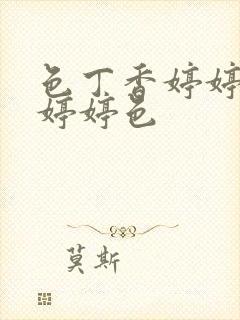 色丁香婷婷
婷婷色
莫斯